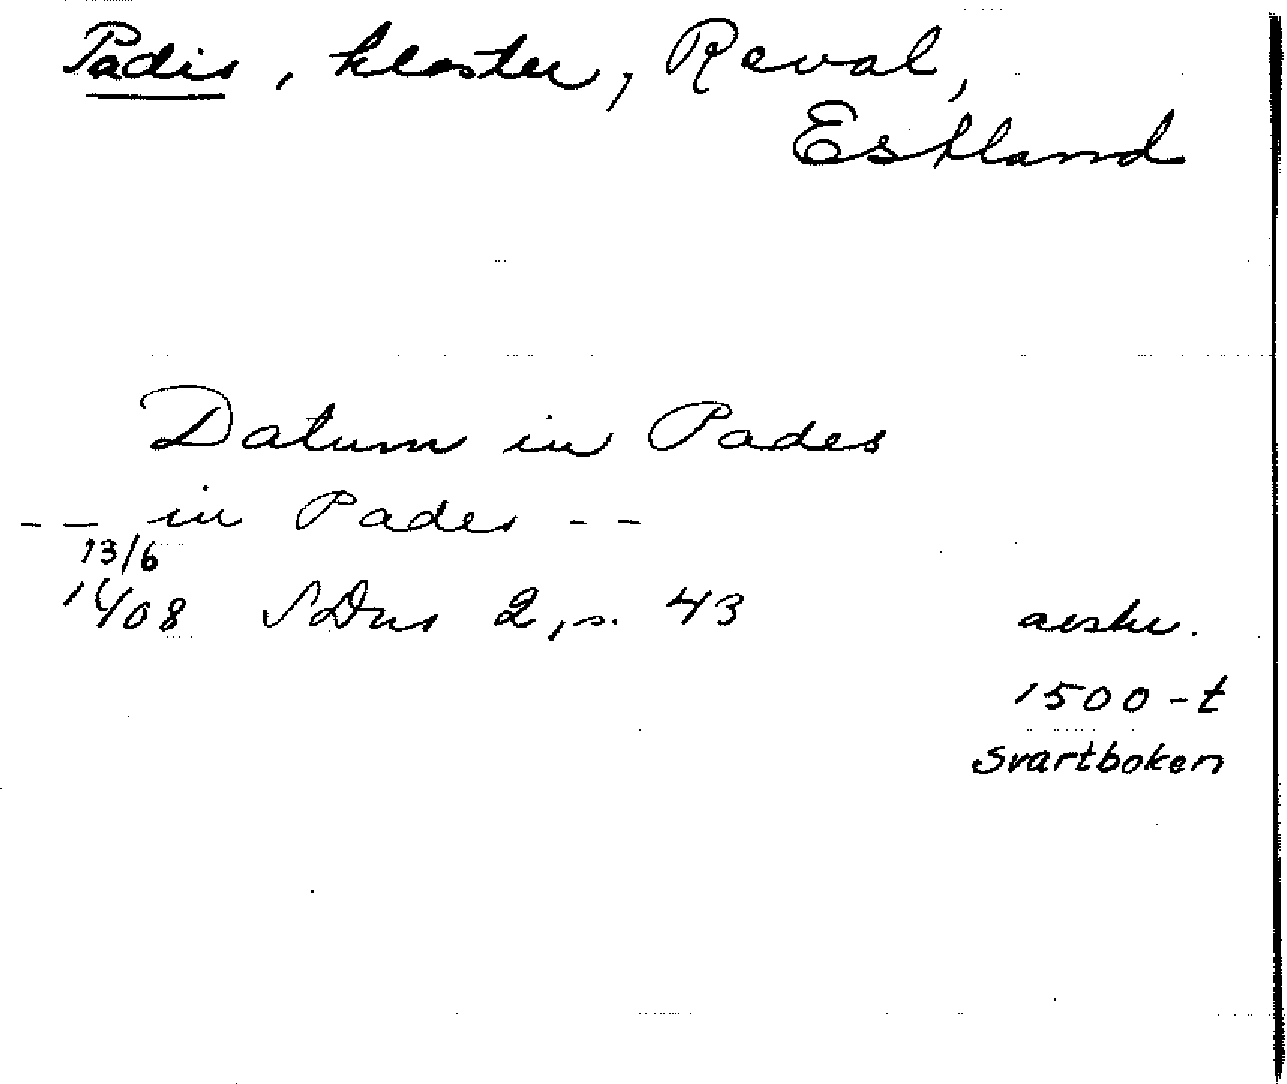 Padis, kloster, Reval,
Estland
Datum in Pades
-- in Pades --
13/6
1408 SDns 2, s. 43 avskr.
1500-t
Svartboken